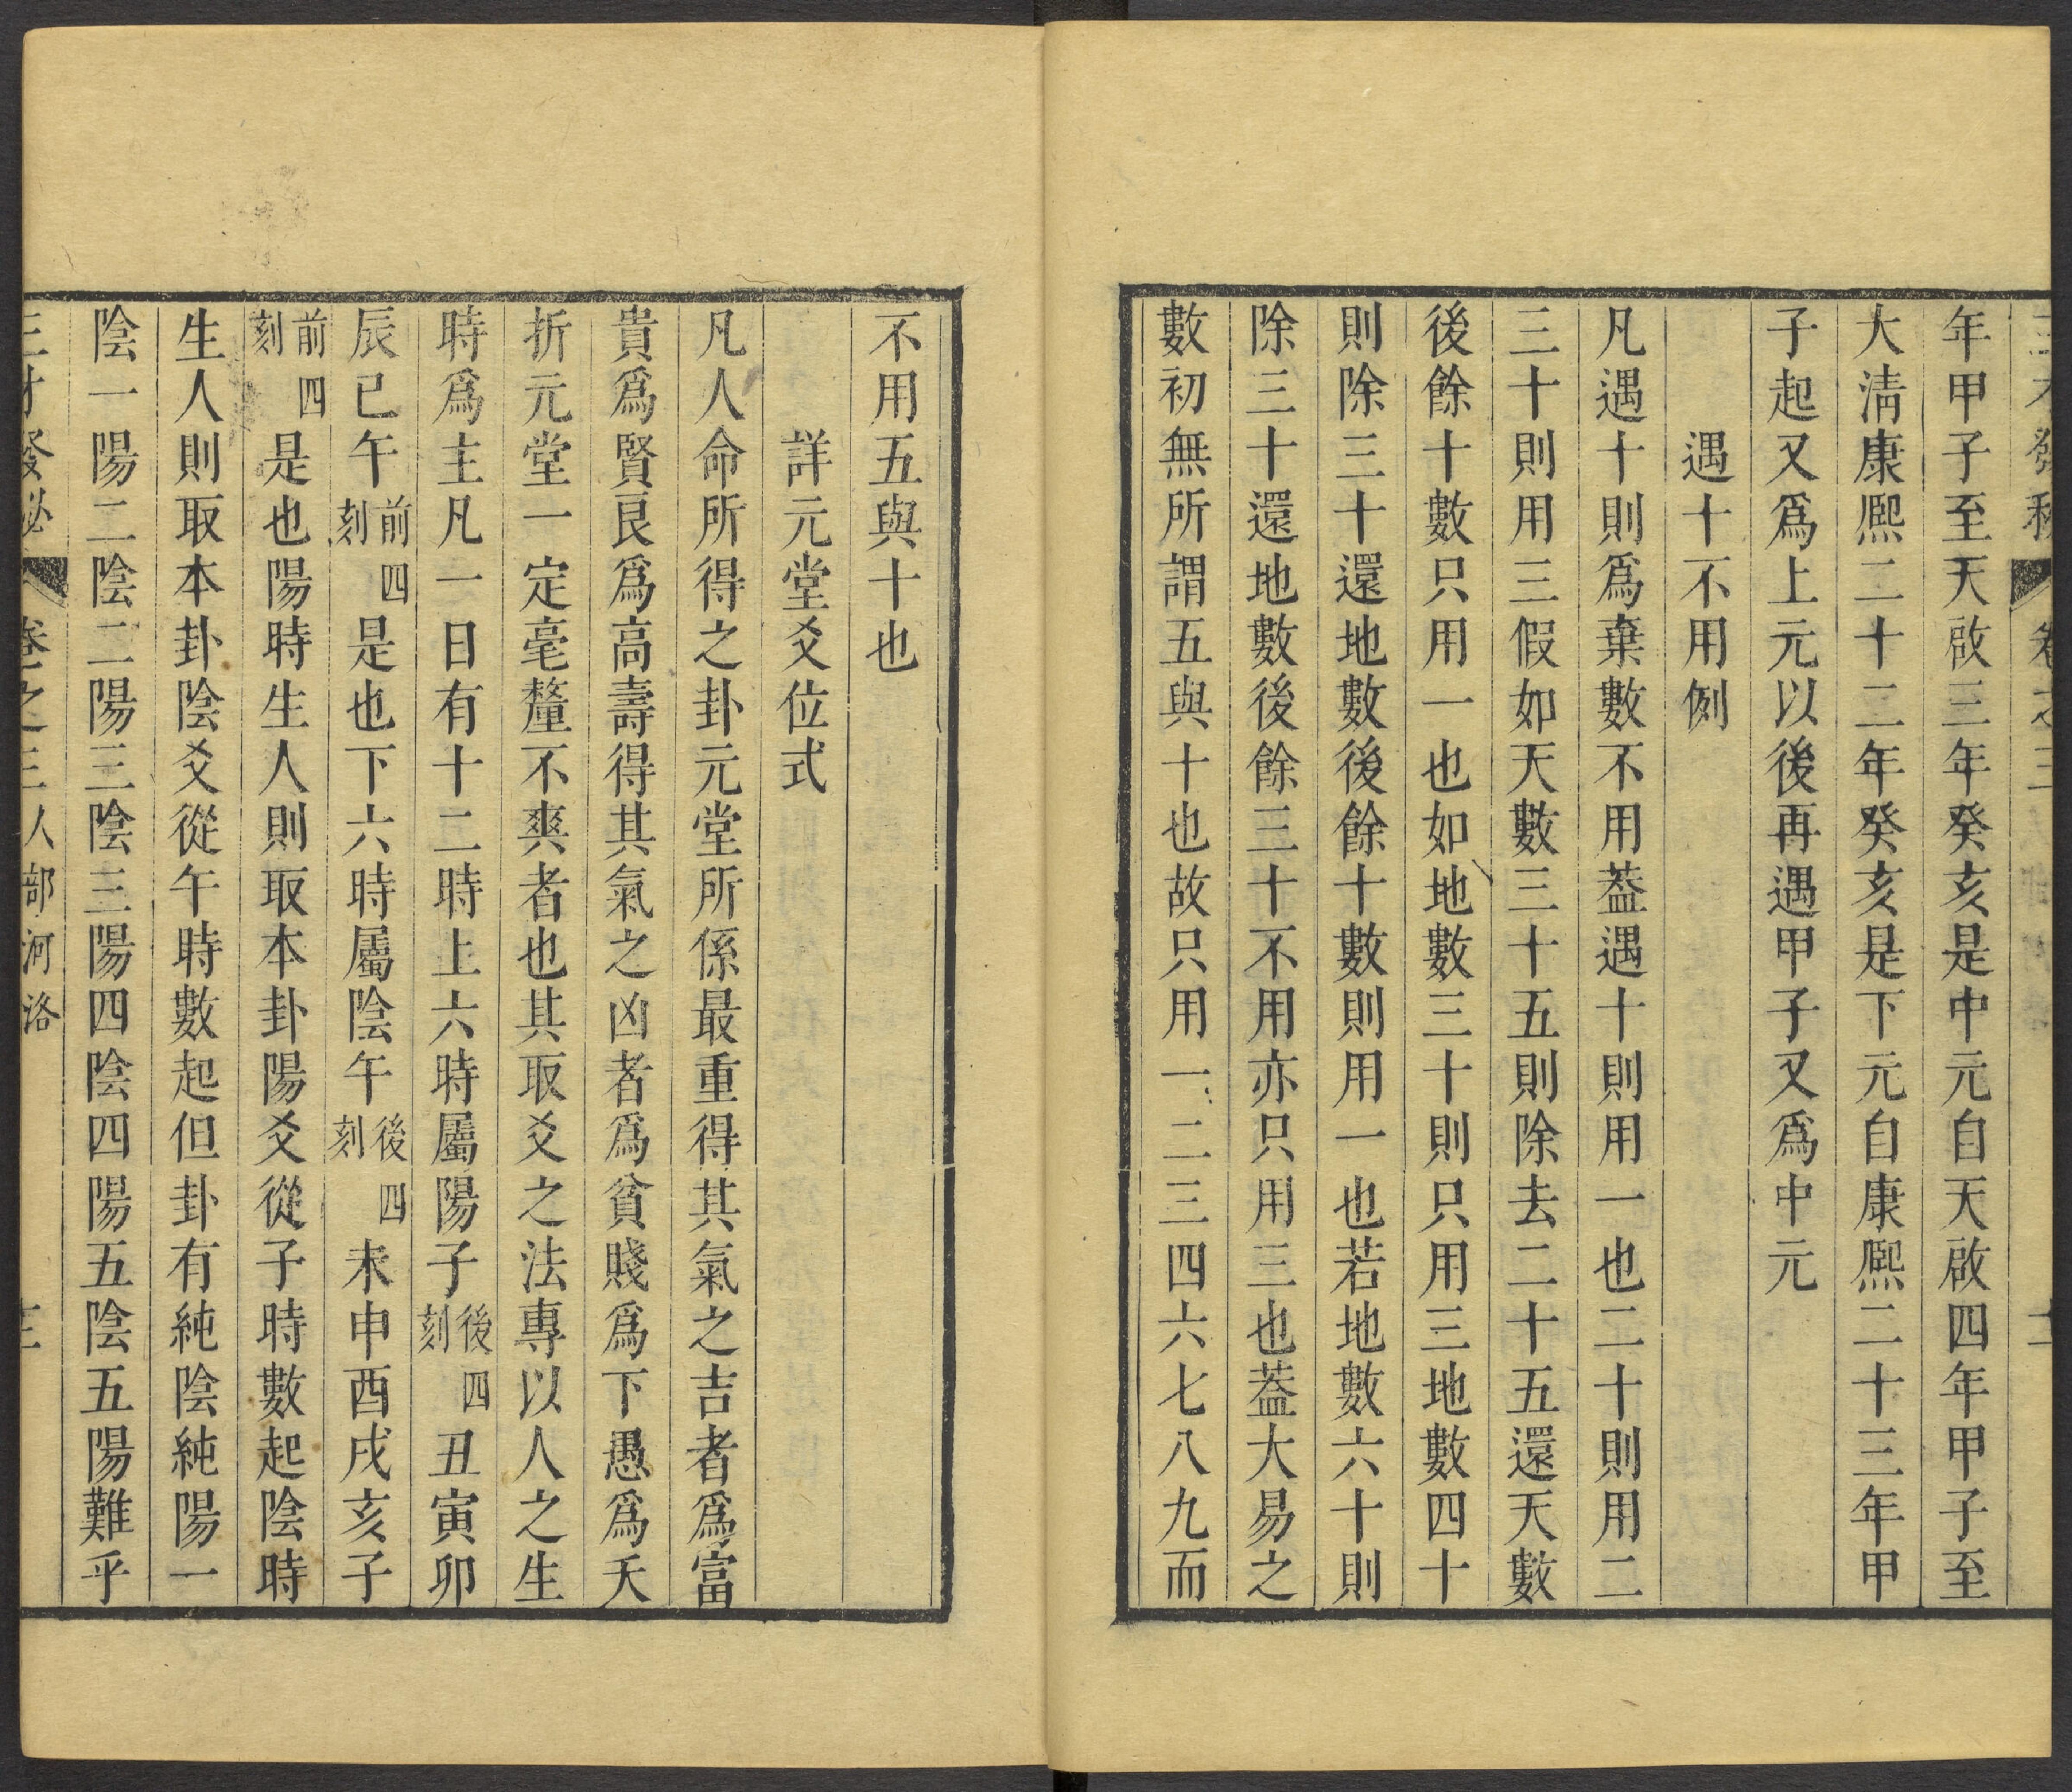 三才發秘 卷之三 十二
年甲子至天啟三年癸亥是中元自天啟四年甲子至
大清康熙二十二年癸亥是下元自康熙二十三年甲
子起又爲上元以後再遇甲子又爲中元
遇十不用例
凡遇十則爲棄數不用葢遇十則用一也二十則用二
三十則用三假如天數三十五則除去二十五還天數
後餘十數只用一也如地數三十則只用三地數四十
則除三十還地數後餘十數則用一也若地數六十則
除三十還地數後餘三十不用亦只用三也葢大易之
數初無所謂五與十也故只用一二三四六七八九而
不用五與十也
詳元堂爻位式
凡人命所得之卦元堂所係最重得其氣之吉者爲富
貴爲賢良爲高壽得其氣之凶者爲貧賤爲下愚爲夭
折元堂一定毫釐不爽者也其取爻之法專以人之生
時爲主凡一日有十二時上六時屬陽子後四刻丑寅卯
辰巳午前四刻是也下六時屬陰午後四刻未申酉戌亥子
前四刻是也陽時生人則取本卦陽爻從子時數起陰時
生人則取本卦陰爻從午時數起但卦有純陰純陽一
陰一陽二陰二陽三陰三陽四陰四陽五陰五陽難乎
三才發秘 卷之三人部河洛